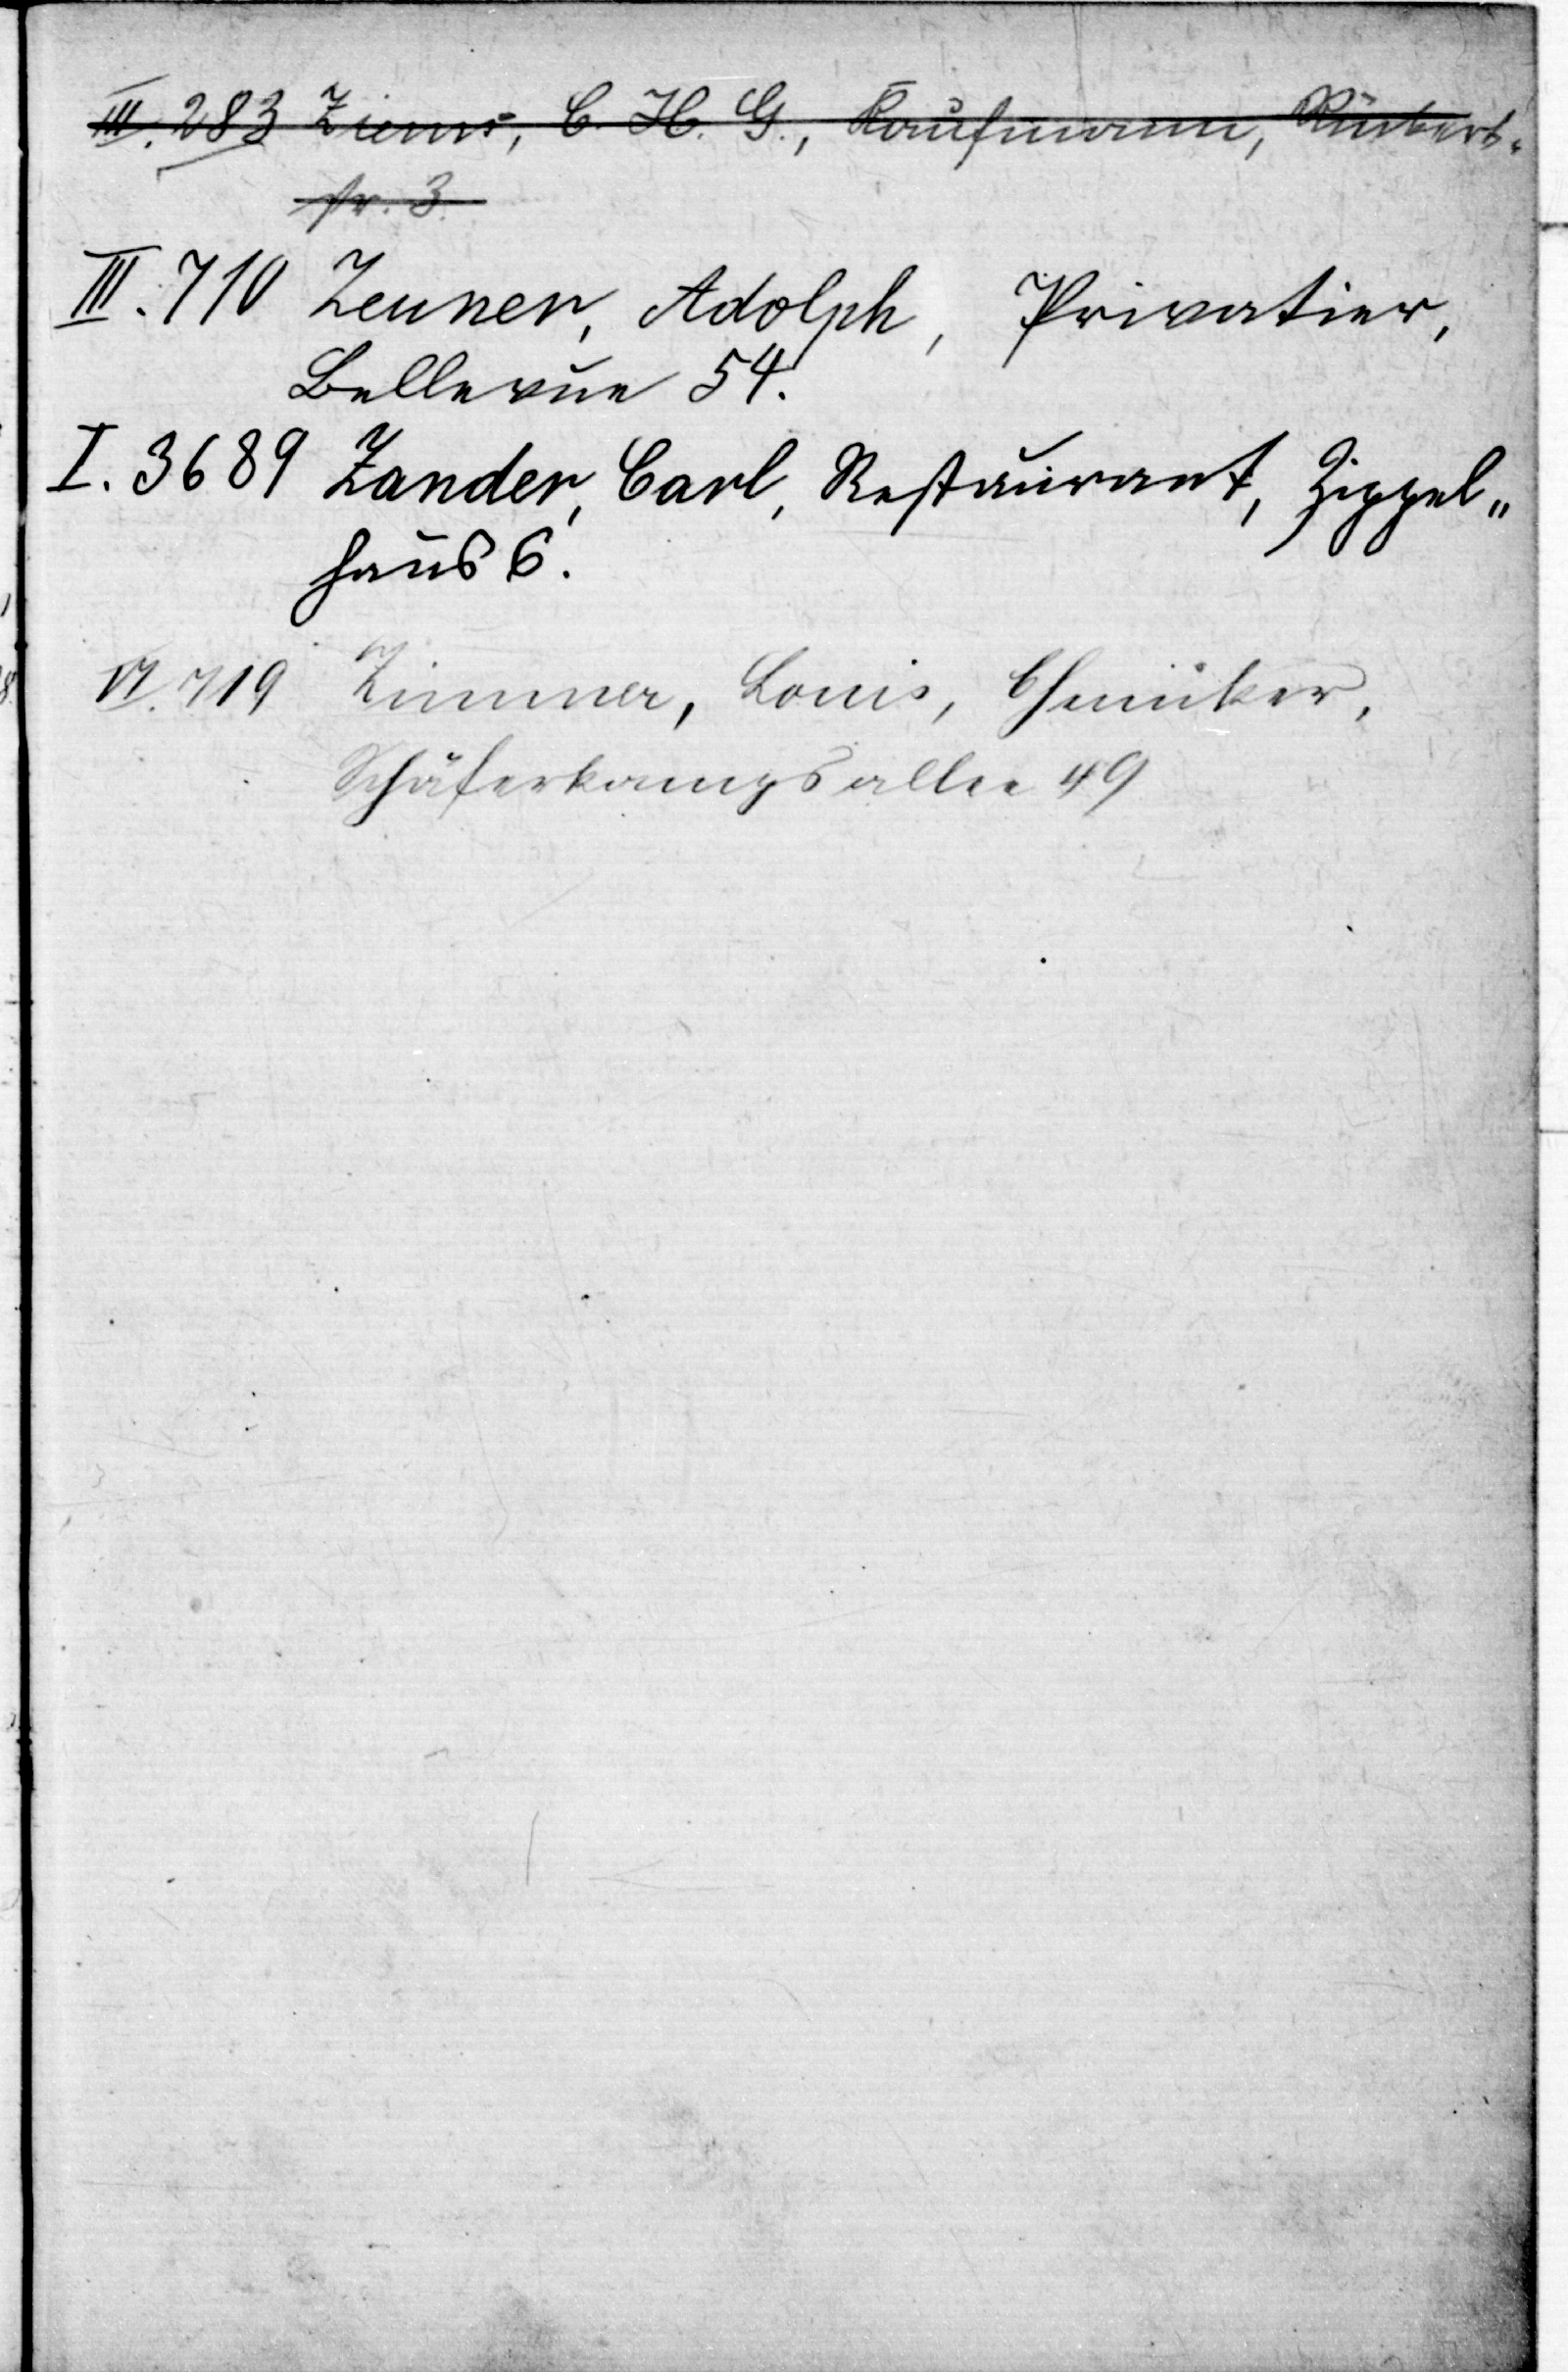 III. 283 Ziems, C. H. G., Kaufmann, Rückert-
str. 3.
III. 710 Zeuner, Adolph, Privatier,
Bellevue 54.
I. 3689 Zander, Carl, Restaurant, Zippel„
haus 6.
VI. 719 Zimmer, Louis, Chemiker,
Schäferkampsallee 49